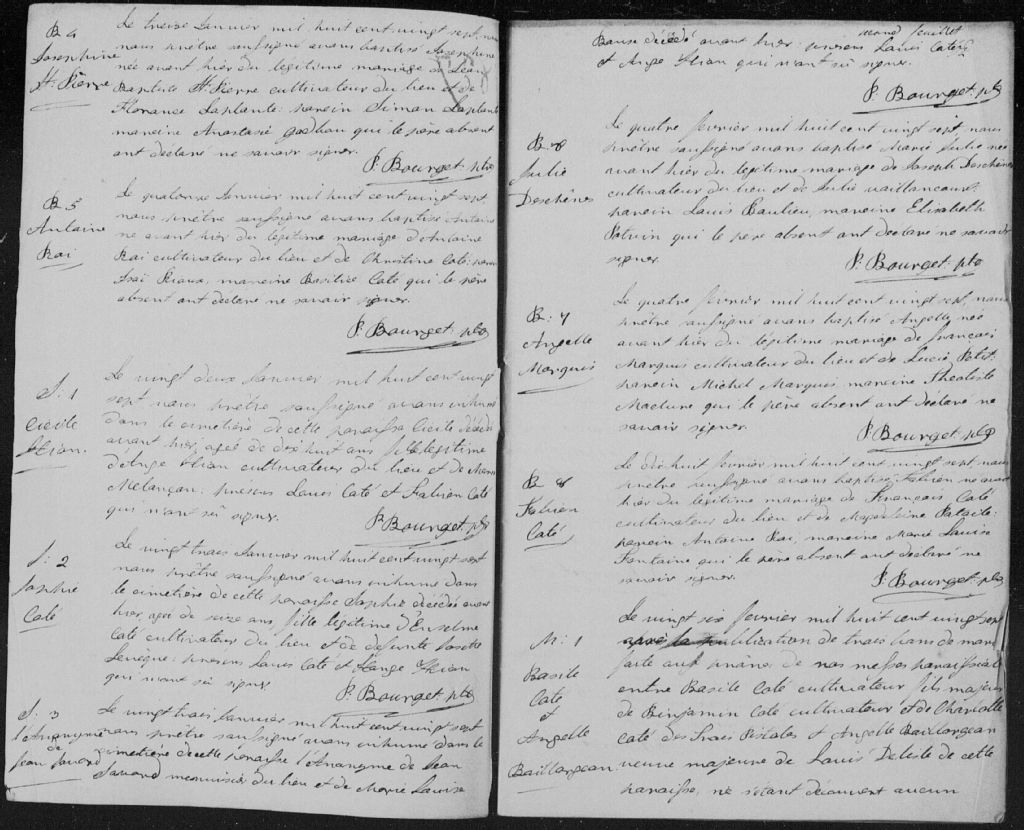 B 4
Josephine
St. Pierre
Le treize Janvier mil huit cent vingt sept, nous
nous prêtre soussigné avons baptisé Josephine
née avant hier du légitime mariage de Jean
Baptiste St. Pierre cultivateur du lieu et de
Florance Laplante: parein Simon Laplante
mareine Anastasie qui le père absent
ont déclaré ne savoir signer.
P. Bourget. ptre
B 5
Antoine
Roi
Le quatorze Janvier mil huit cent vingt sept,
nous prêtre soussigné avons baptisé Antoine
né avant hier du légitime mariage d'Antoine
Roi cultivateur du lieu et de Christine Coté: parein
Isaï mareine Basilice Coté qui le père
absent ont déclaré ne savoir signer.
P. Bourget. ptre
S: 1
Cécile
Le vingt deux Janvier mil huit cent vingt
sept nous prêtre soussigné avons inhumé
dans le cimetière de cette paroisse Cécile décédée
avant hier, agée de dix huit ans fille légitime
d'Ange cultivateur du lieu et de
Melançon: présens Louis Coté et Fabien Coté
qui n'ont sû signer.
P. Bourget. ptre
S: 2
Sophie
Coté
Le vingt trois Janvier mil huit cent vingt sept
nous prêtre soussigné avons inhumé dans
le cimetière de cette paroisse Sophie décédée avant
hier, agée de seize ans, fille légitime d'Enselme
Coté cultivateur du lieu et de défunte Josette
Levêque: présens Louis Coté et
qui n'ont sû signer
P. Bourget. ptre
S: 3
l'Anonyme
de
Jean Savard
Le vingt trois Janvier mil huit cent vingt sept
nous prêtre soussigné avons inhumé dans le
cimetière de cette paroisse l'Anonyme de Jean
Savard menuisier du lieu et de Marie Louise
second feuillet
décédé avant hier: présens Louis Coté
et Ange qui n'ont sû signer.
P. Bourget. ptre
B: 6
Julie
Deschênes
Le quatre février mil huit cent vingt sept, nous
prêtre soussigné avons baptisé Marie Julie née
avant hier du légitime mariage de Joseph Deschênes
cultivateur du lieu et de Julie Vaillancourt:
parein Louis Beaulieu, mareine Elisabeth
Potvin qui le père absent ont déclaré ne savoir
signer.
P. Bourget. ptre
B: 7
Angelle
Marquis
Le quatre février mil huit cent vingt sept, nous
prêtre soussigné avons baptisé Angelle née
avant hier du légitime mariage de François
Marquis cultivateur du lieu et de Lucie Petit:
parein Michel Marquis mareine Théotiste
qui le père absent ont déclaré ne
savoir signer.
P. Bourget. ptre
B 8
Fabien
Coté
Le dix huit février mil huit cent vingt sept, nous
prêtre soussigné avons baptisé Fabien né avant
hier du légitime mariage de François Coté
cultivateur du lieu et de Magdeleine
parein Antoine Roi; mareine Marie Louise
Fontaine qui le père absent ont déclaré ne
savoir signer.
P. Bourget. ptre
M: 1
Basile
Coté
et
Angelle
Baillargeon
Le vingt six février mil huit cent vingt sept
après la publication de trois bans de mariage
faite aux prônes de nos messes paroissiales
entre Basile Coté cultivateur fils majeur
de Binjamin Coté cultivateur et de Charlotte
Coté des Trois Pistoles et Angelle Baillargeon
veuve majeure de Louis Deliste de cette
paroisse, ne s'étant découvert aucun